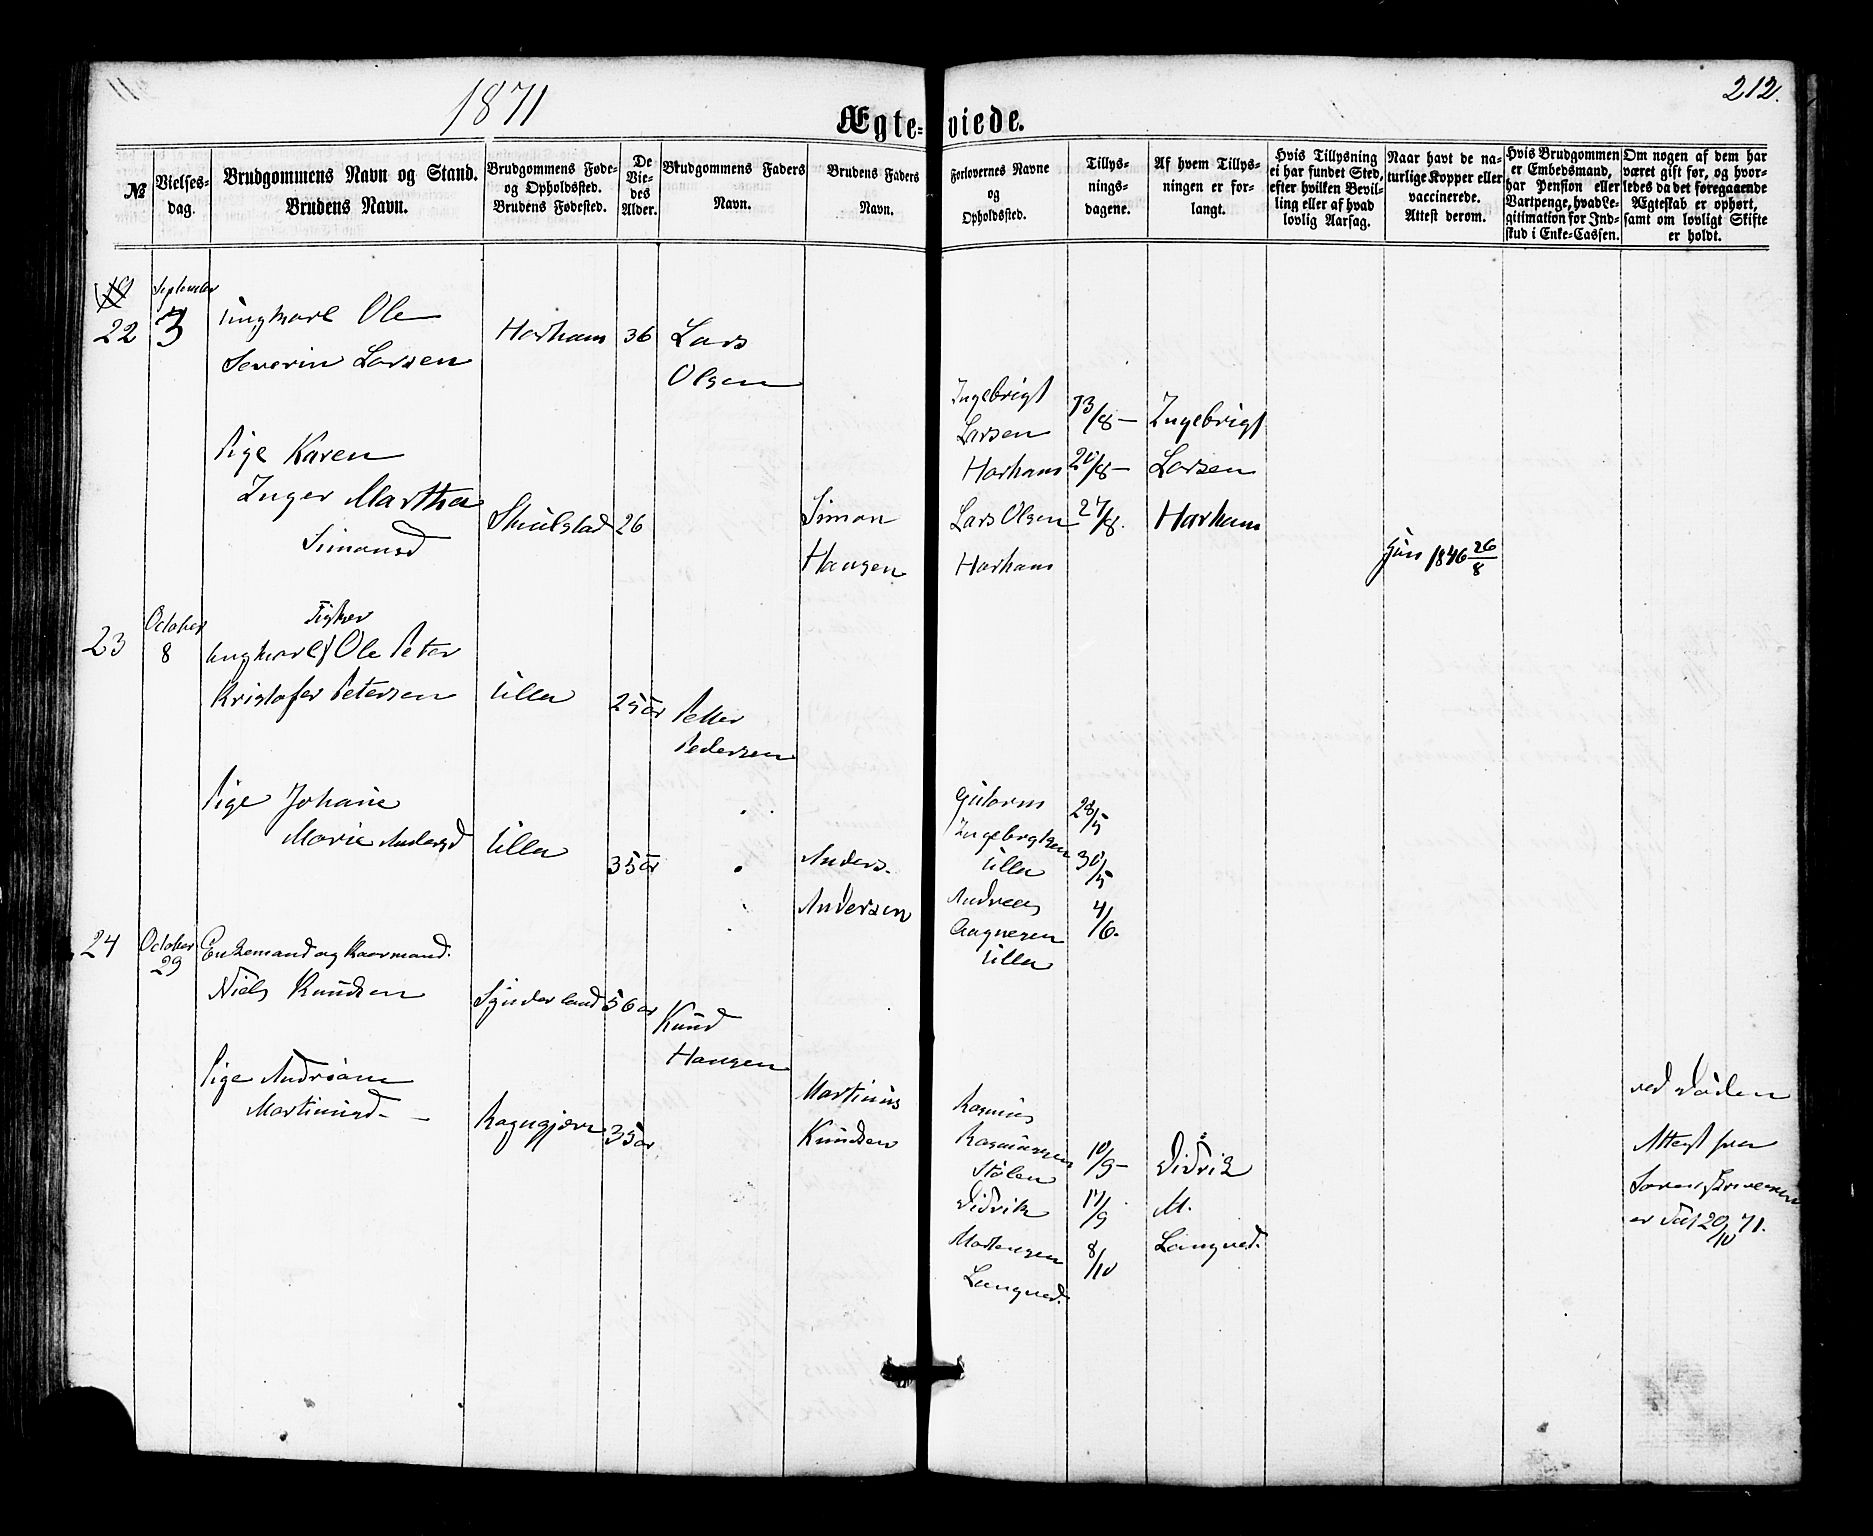 1871
212.
Ægte-viede.
№
Vielses-
dag.
Brudgommens Navn og Stand.
Brudens Navn.
Brudgommens Føde-
og Opholdssted.
Brudens Fødested.
De
Vie-
des
Alder.
Brudgommens Faders
Navn.
Brudens Faders
Navn.
Forlovernes Navne
og
Opholdssted.
Tillys-
nings-
dagene.
Af hvem Tillys-
ningen er for-
langt.
Hvis Tillysning
ei har fundet Sted,
efter hvilken Bevil-
ling eller af hvad
lovlig Aarsag.
Naar havt de na-
turlige Kopper eller
vaccinerede.
Attest derom.
Hvis Brudgommen
er Embedsmand,
har Pension eller
Vartpenge, hvad Le-
gitimation for Ind-
skud i Enke-Cassen.
Om nogen af dem har
været gift før, og hvor-
ledes da det foregaaende
Ægteskab er ophørt,
samt om lovligt Skifte
er holdt.
22
September
3
Ungkarl Ole
Severin Larsen
Harham
36
Lars
Olsen
Pige Karen
Inger Martha
Simonsd
Skuilstad
26
Simon
Hansen
Ingebrigt
Larsen
Harham
Lars Olsen
Harham
13/8 —
20/8 —
27/8.
Ingebrigt
Larsen
Harham
1846 26/8
23
October
8
Fisker
Ungkarl Ole Peter
Kristofer Petersen
Ulla
25 år
Petter
Pedersen
Pige Johane
Marie Andersd
Ulla
35 år
Anders
Andersen
Gutorm
Ingebrgtsen
Ulla
Andreas
Aagnesen
Ulla
28/5
30/5
4/6.
24
October
29
Enkemand og Kaarmand.
Niels Knudsen
Synderland
56 år
Knud
Hansen
Pige Andriane
Martinusd —
Rogngjære
35 år
Martinus
Knudsen
Rasmus
Rasmussen
Stølen
Didrik
Mortensen
Langved.
10/9 —
17/9
8/10
Didrik
M.
Langved.
ved Døden
Attest fra
er dat 20/10 71.